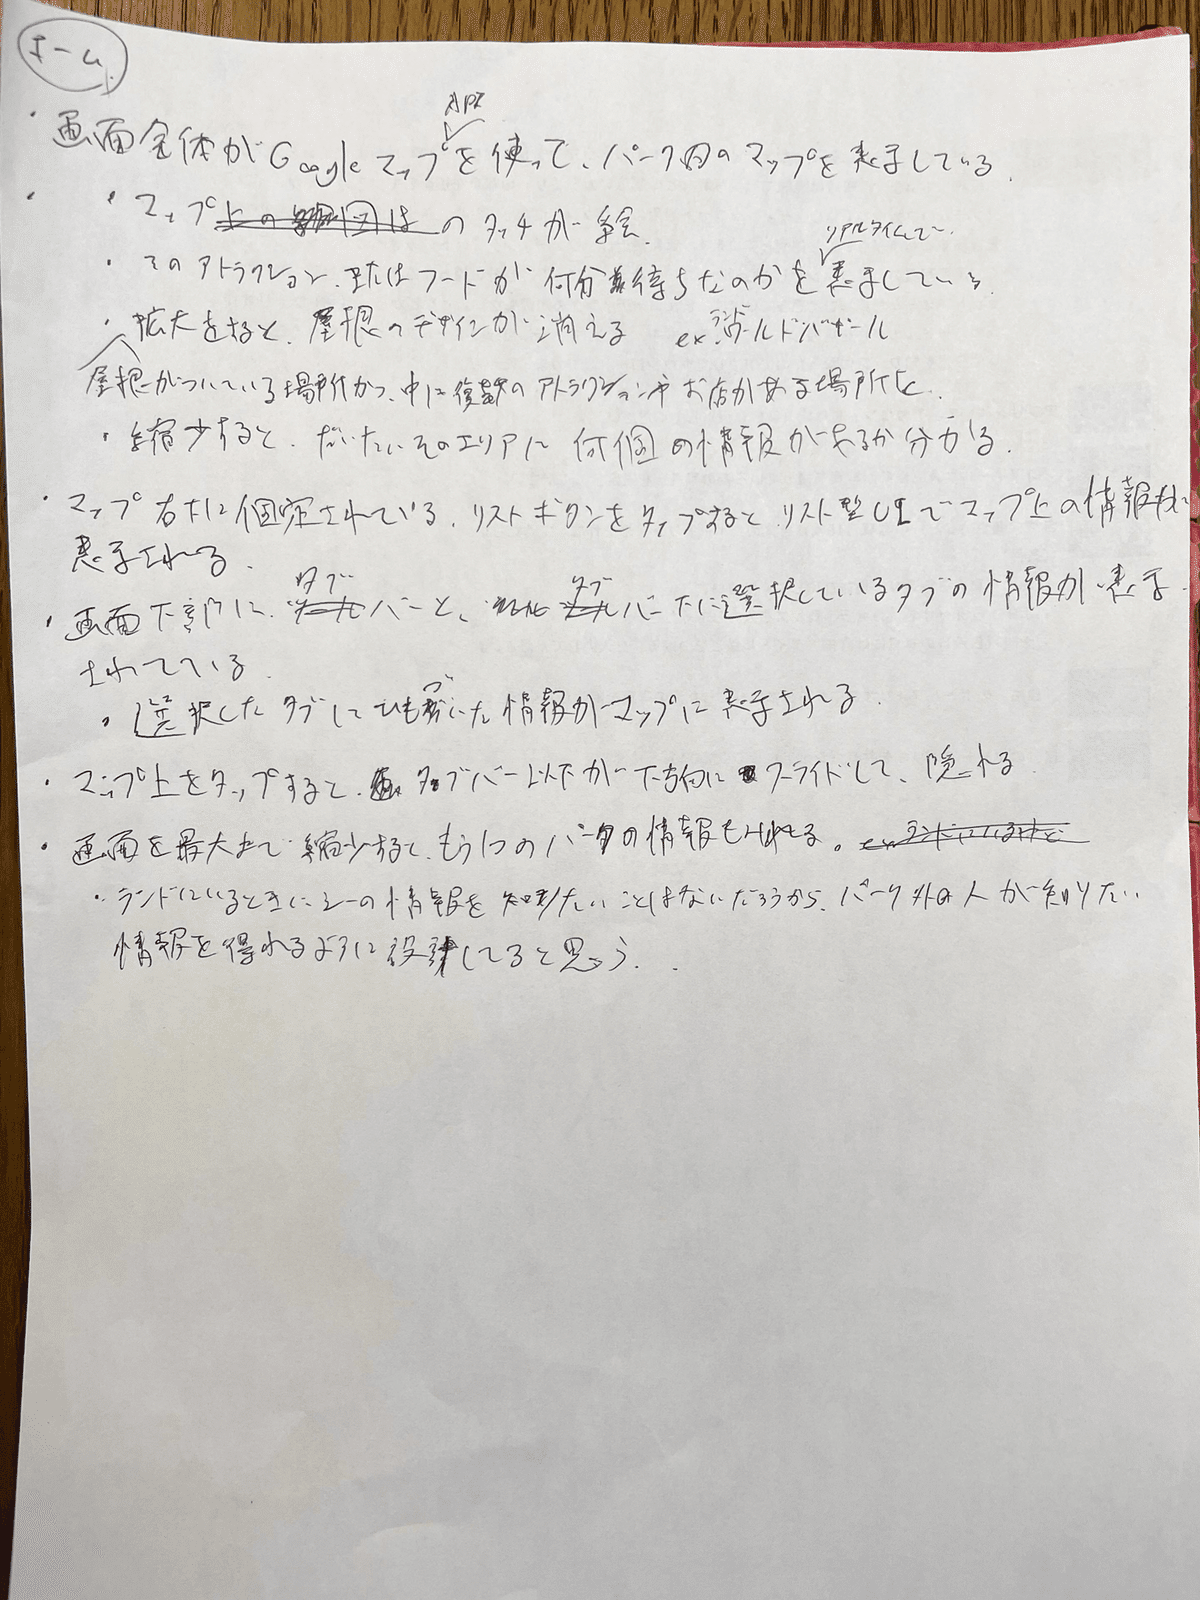 ホーム
・画面全体がGoogleマップAPIを使って、パーク内のマップを表示している。
・マップのタッチが絵
・そのアトラクション、またはフードが何分待ちなのかをリアルタイムで表示している。
・拡大をすると、屋根のデザインが消える ex.ランド ワールドバザール
屋根がついている場所かつ、中に複数のアトラクションやお店がある場所に
・縮少すると、だいたいそのエリアに何個の情報があるか分かる。
・マップ右下に固定されている、リストボタンをタップすると、リスト型UIでマップ上の情報が
表示される。
・画面下部に、タブバーと、タブバー下に選択しているタブの情報が表示
されている。
・選択したタブとひもづいた情報がマップに表示される
・マップ上をタップすると、タブバー以下が下方向にスライドして、隠れる
・画面を最大まで縮少すると、もう1つのパークの情報もみれる。
・ランドにいるときにシーの情報を知りたいことはないだろうから、パーク外の人が知りたい
情報を得れるように設計してると思う。